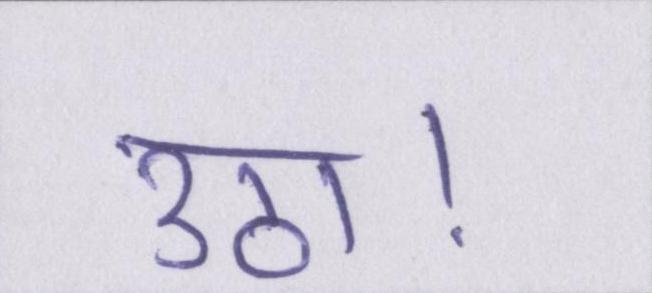 उठा!